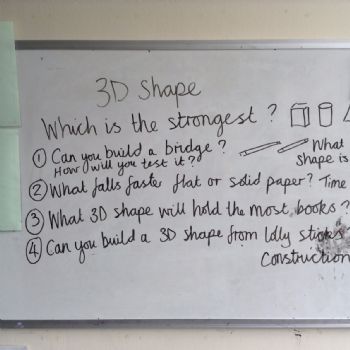 3D Shape
Which is the strongest?
① Can you build a bridge?
How will you test it?
What
shape is
② What falls faster flat or solid paper? Time
③ What 3D shape will hold the most books?
④ Can you build a 3D shape from lolly sticks
Construction